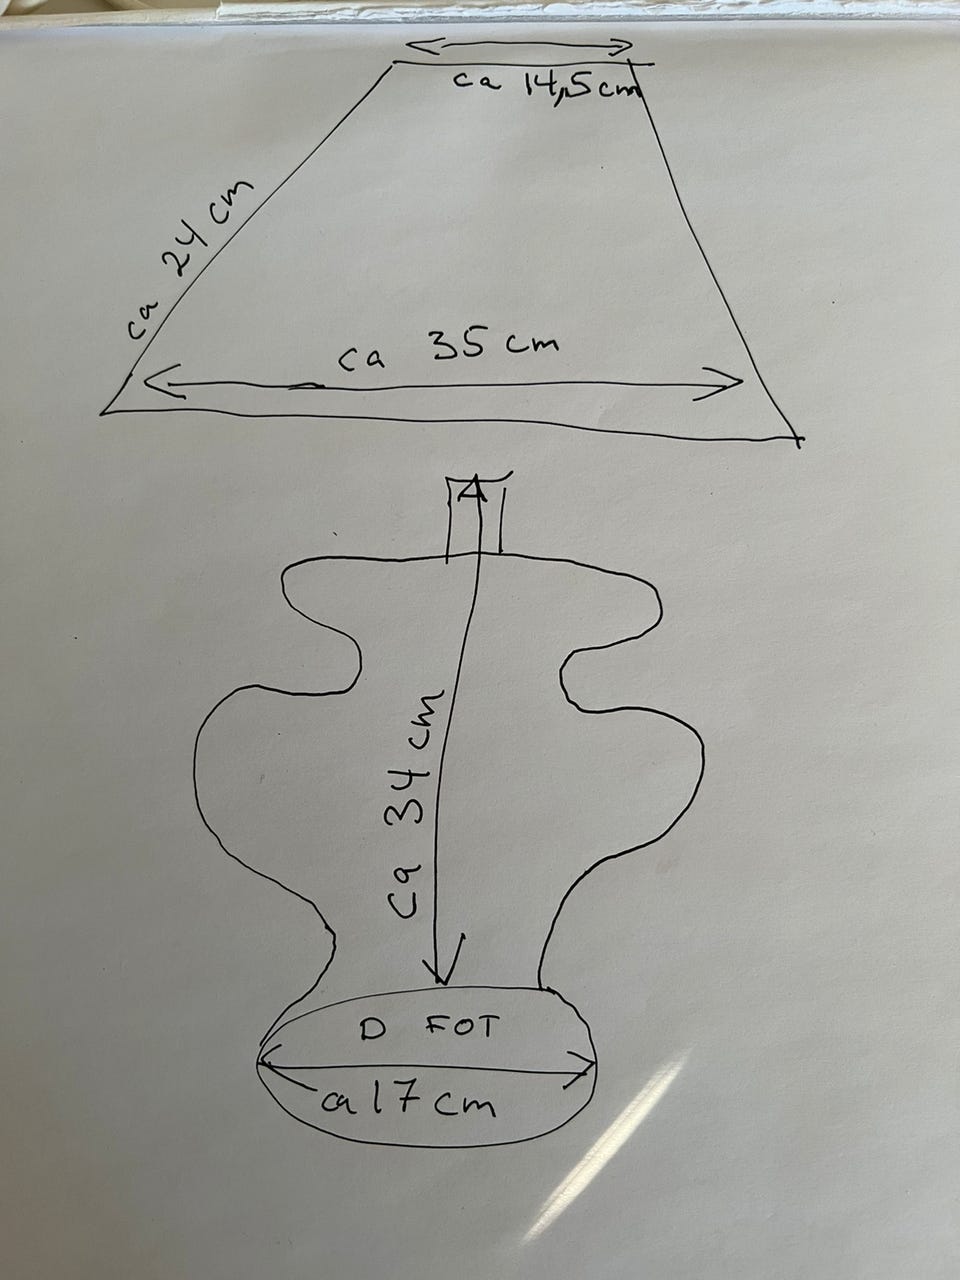 ca 14,5 cm
ca 24 cm
ca 35 cm
ca 34 cm
D FOT
ca 17 cm